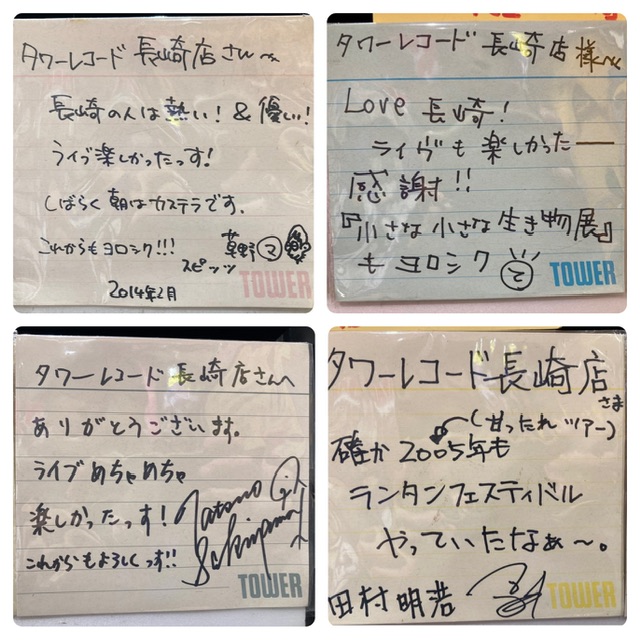 タワーレコード 長崎店さんへ
長崎の人は熱い! & 優しい!
ライブ楽しかったっす!
しばらく朝はカステラです。
これからもヨロシク!!! 草野マ
スピッツ
2014年2月
TOWER
タワーレコード 長崎店 様へ
Love 長崎!
ライヴも楽しかったー
感謝!!
『小さな小さな生き物展』
もヨロシク
TOWER
タワーレコード 長崎店さんへ
ありがとうございます。
ライブめちゃめちゃ
楽しかったっす!
これからもよろしくっす!!
TOWER
タワーレコード長崎店さま
(甘ったれツアー)
確か2005年も
ランタンフェスティバル
やっていたなぁ〜。
田村明浩
TOWER